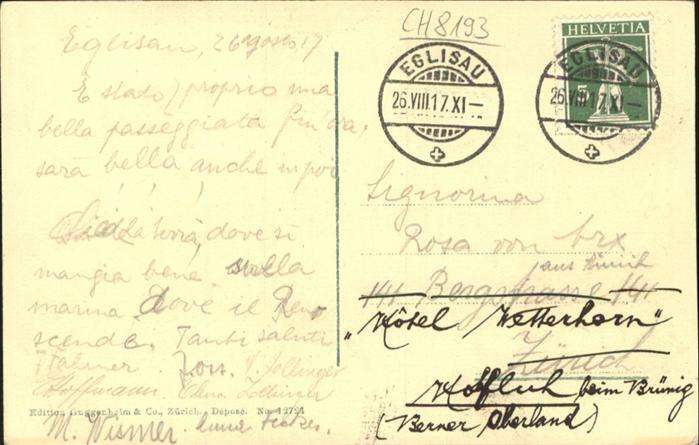 CH 8193
HELVETIA
EGLISAU
26.VIII.17.XI–
EGLISAU
26.VIII.17.XI–
5
Eglisau, 26 agosto 17
È stato proprio una
bella passeggiata fin'ora,
sarà bella anche in poi
dove si
mangia bene sulla
marina dove il Reno
scende. Tanti saluti
Hoffmann. Elena Zollinger
M. Wismer.
Signorina
Rosa von Arx
aus Zürich
141 Bergstrasse 141
Zürich
"Hôtel Wetterhorn"
Hofluh beim Brünig
(Berner Oberland)
Edition Guggenheim & Co., Zürich. Déposé. No. 12791